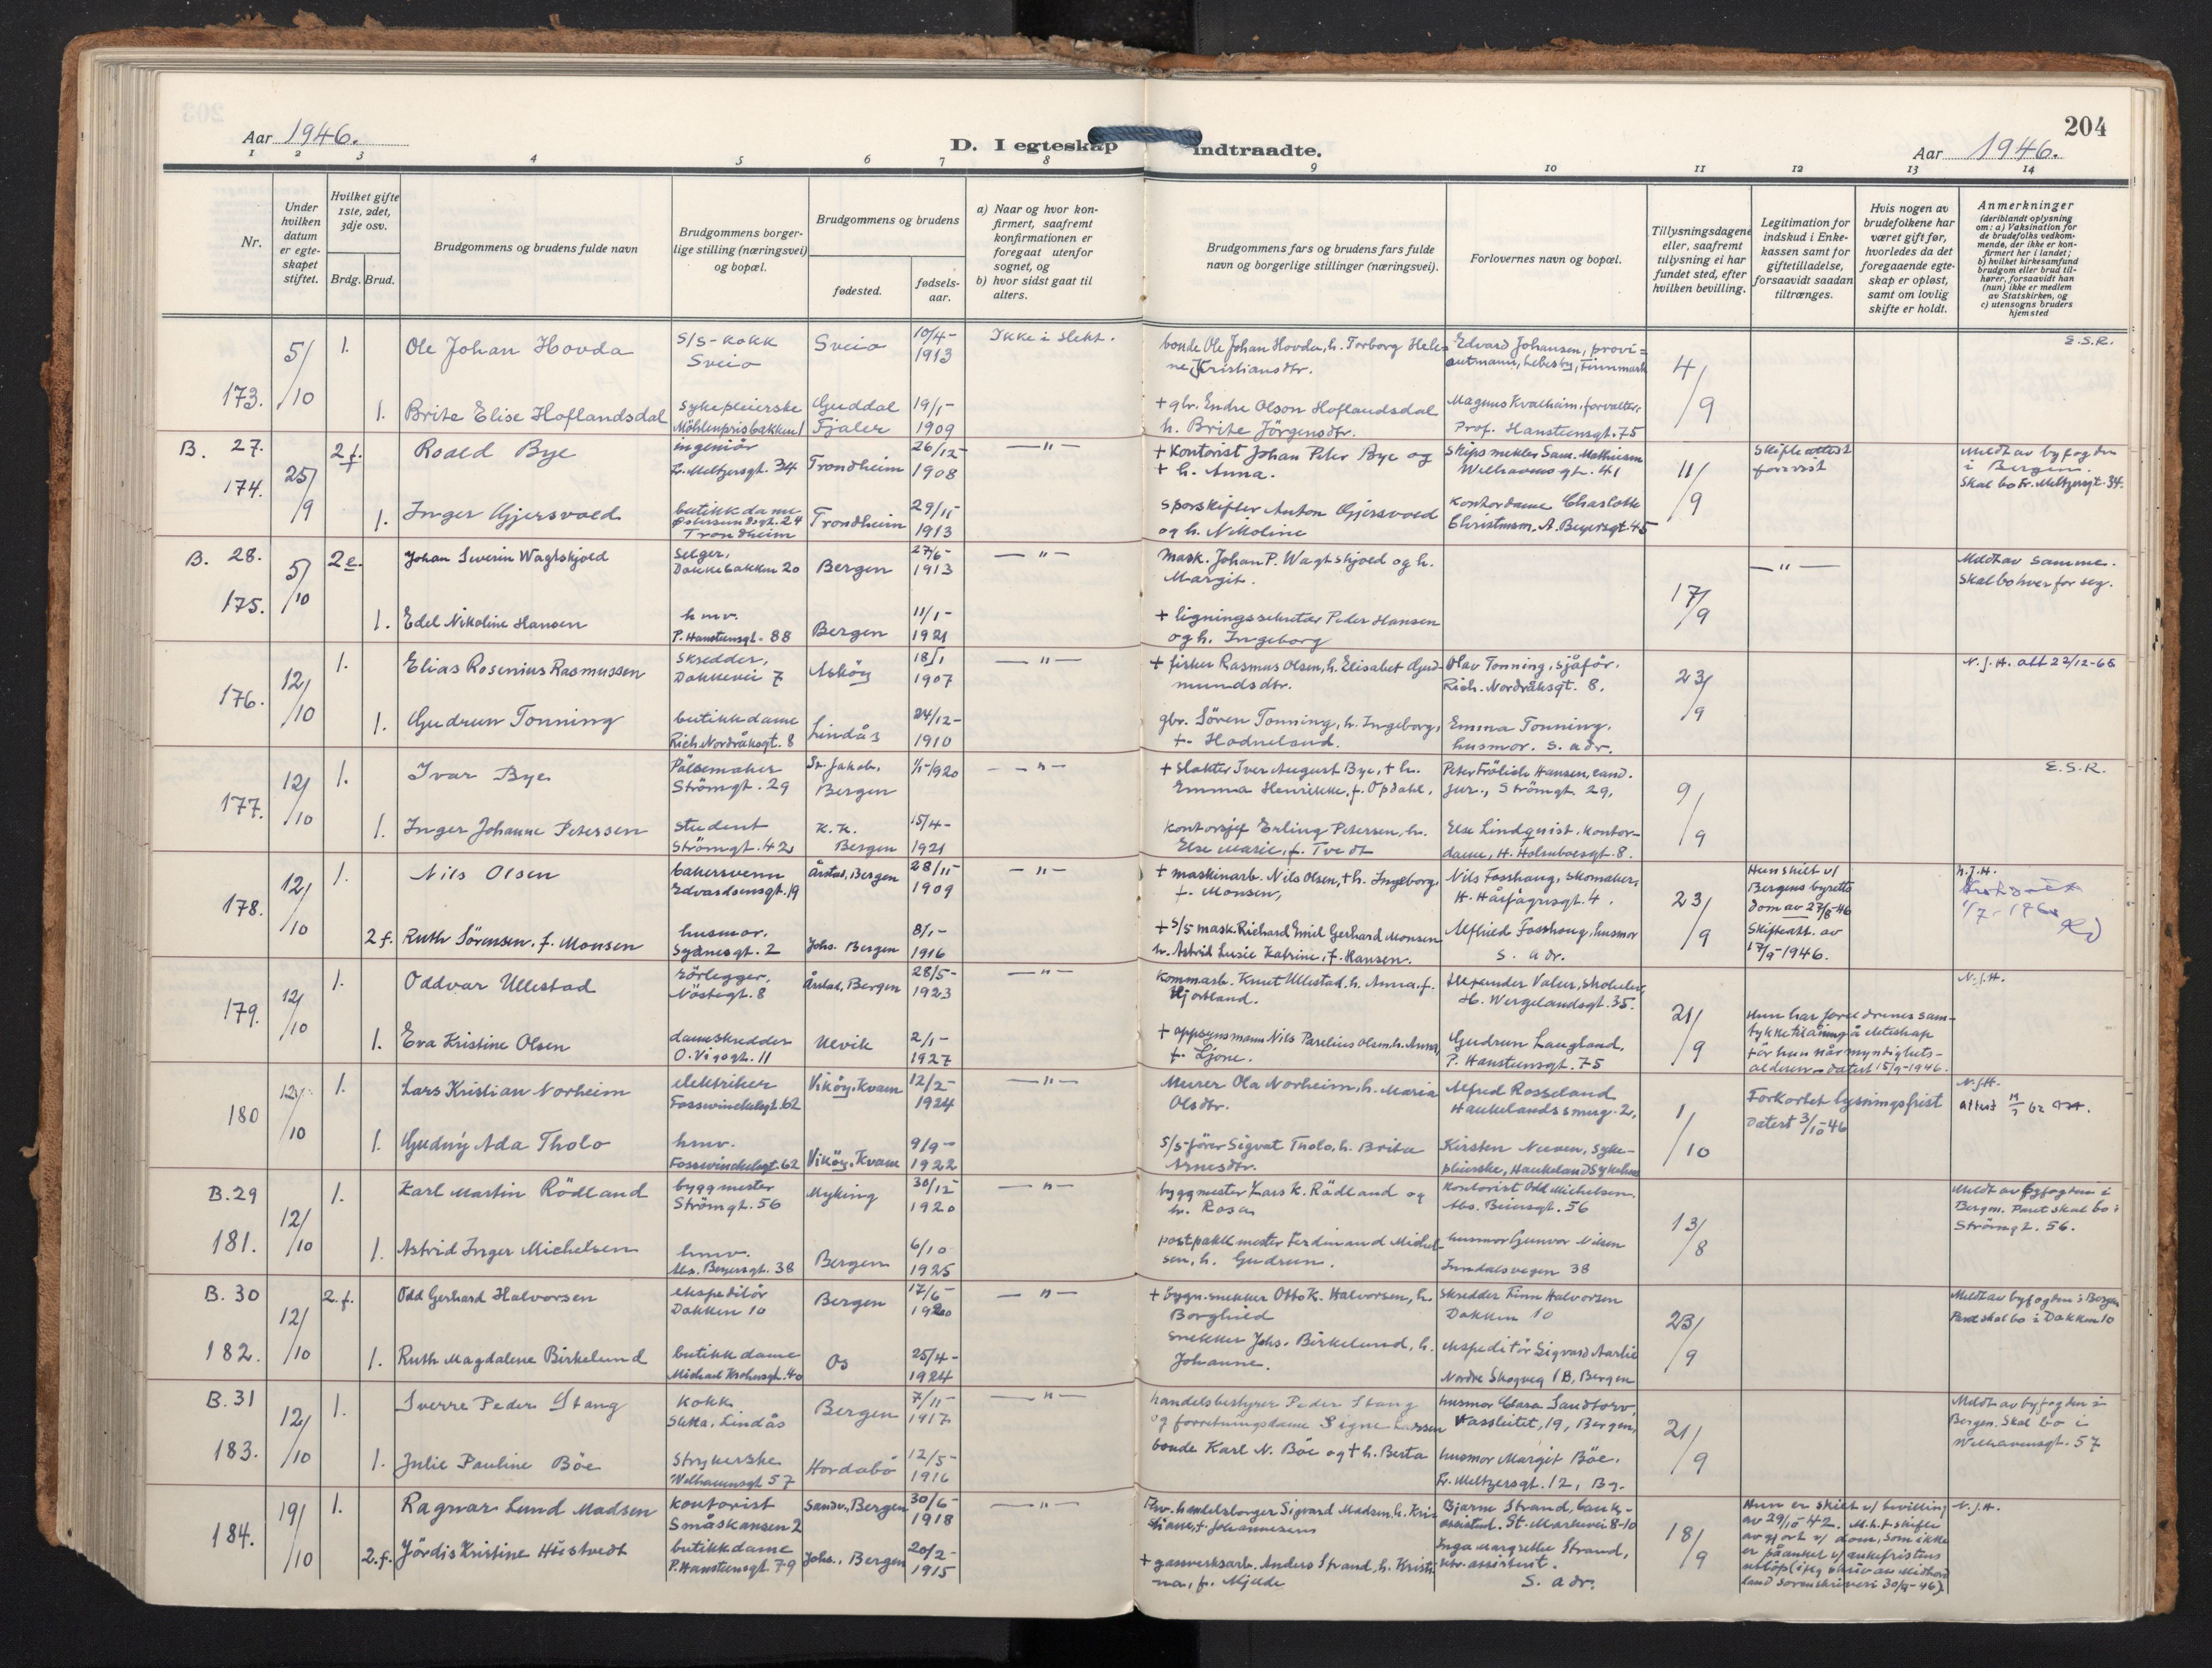 204
Aar 1946.
D. I egteskap indtraadte.
Aar 1946.
1 2 3 4 5 6 7 8 9 10 11 12 13 14
Nr.
Under hvilken datum er egteskapet stiftet.
Hvilket gifte 1ste, 2det, 3dje osv.
Brdg. Brud.
Brudgommens og brudens fulde navn
Brudgommens borgerlige stilling (næringsvei) og bopæl.
Brudgommens og brudens
fødested.
fødselsaar.
a) Naar og hvor konfirmert, saafremt konfirmationen er foregaat utenfor sognet, og
b) hvor sidst gaat til alters.
Brudgommens fars og brudens fars fulde navn og borgerlige stillinger (næringsvei).
Forlovernes navn og bopæl.
Tillysningsdagene eller, saafremt tillysning ei har fundet sted, efter hvilken bevilling.
Legitimation for indskud i Enkekassen samt for giftetilladelse, forsaavidt saadan tiltrænges.
Hvis nogen av brudefolkene har været gift før, hvorledes da det foregaaende egteskap er opløst, samt om lovlig skifte er holdt.
Anmerkninger
(deriblandt oplysning om: a) Vaksination for de brudefolks vedkommende, der ikke er konfirmert her i landet;
b) hvilket kirkesamfund brudgom eller brud tilhører, forsaavidt han (hun) ikke er medlem av Statskirken, og
c) utensogns bruders hjemsted
173. 5/10 1. Ole Johan Hovda S/S-kokk Sveio Sveio 10/4-1913 Ikke i slekt. bonde Ole Johan Hovda, h. Torborg Helene Kristiansdtr. Edvard Johansen, proviantmann, Lebesby, Finnmark 4/9 E.S.R.
1. Brite Elise Hoflandsdal sykepleierske Möhlenprisbakken 1 Guddal Fjaler 19/1-1909 + gbr. Endre Olson Hoflandsdal h. Brite Jörgensdtr. Magnus Kvalheim, forvalter, Prof. Hansteensgt. 75
B. 27. 174. 25/9 2 f. Roald Bye ingeniör Fr. Meltzersgt. 34 Trondheim 26/12-1908 —"— + Kontorist Johan Peter Bye og + h. Anna. Skipsmekler Sam. Mathiesen Welhavensgt. 41 11/9 Skifteattest forevist Meldt av byfogden i Bergen. Skal bo Fr. Meltzersgt. 34.
1. Inger Gjersvold butikkdame Østersundsgt. 24 Trondheim Trondheim 29/11-1913 Sporskifter Anton Gjersvold og h. Nikoline Kontordame Charlotte Christensen, A. Beyersgt. 45
B. 28. 175. 5/10 2 e. Johan Severin Wagtskjold Selger, Dokkebakken 20 Bergen 27/6-1913 —"— Mask. Johan P. Wagtskjold og h. Margit. 17/9 —"— Meldt av samme. Skal bo hver for seg.
1. Edel Nikoline Hansen hmv. P. Hansteensgt. 88 Bergen 11/1-1921 + ligningssekretær Peder Hansen og h. Ingeborg
176. 12/10 1. Elias Rosenius Rasmussen Skredder, Dokkevei 7 Askøy 18/1 1907 —"— + fisker Rasmus Olsen, h. Elisabet Gjedmundsdtr. Olav Tonning, sjåför. Rich. Nordråksgt. 8. 23/9 N.J.H. att 22/12-65
1. Gudrun Tonning butikkdame Rich. Nordråksgt. 8 Lindås 24/12-1910 gbr. Sören Tonning, h. Ingeborg, f. Hodneland. Emma Tonning. husmor. s. adr.
177. 12/10 1. Ivar Bye Pölsemaker Strömgt. 29 St. Jakob, Bergen 1/1-1920 —"— + slakter Iver August Bye, + h. Emma Henrikke, f. Opdahl. Peter Frölich Hansen, cand. jur., Strömgt. 29, 9/9 E.S.R.
1. Inger Johanne Petersen student Strömgt. 42 K.K. Bergen 15/4-1921 Kontorsjef Erling Petersen, h. Else Marie, f. Tvedt Else Lindquist, kontordame, H. Holmboesgt. 8.
178. 12/10 1. Nils Olsen bakersvenn Edvardsensgt. 19 Årstad, Bergen 28/11-1909 —"— + maskinarb. Nils Olsen, + h. Ingeborg, f. Monsen, Nils Fosshaug, skomaker, H. Hårfagresgt. 4. 23/9 Hun skilt v/ Bergens byretts dom av 27/8-46 Skifteatt. av 17/9-1946. N.J.H.
2 f. Ruth Sörensen, f. Monsen husmor. Sydnesgt. 2 Johs. Bergen 8/1-1916 + S/S mask. Richard Emil Gerhard Monsen h. Astrid Lusie Katrine, f. Hansen. Alfhild Fosshaug, husmor s. adr.
179. 12/10 1. Oddvar Ullestad rörlegger, Nöstegt. 8 Årstad, Bergen 28/5-1923 —"— Kommarb. Knut Ullestad, h. Anna, f. Hjortland. H. Wergelandsgt. 35. 21/9 N.J.H.
1. Eva Kristine Olsen dameskredder O. Vigsgt. 11 Ulvik 2/1-1927 + oppsynsmann Nils Parelius Olsen h. Anna, f. Ljone. Gudrun Langland, P. Hansteensgt. 75 Hun har foreldrenes samtykke til å inngå ekteskap för hun når myndighetsalderen - datert 15/9-1946.
180 12/10 1. Lars Kristian Norheim elektriker Fosswinckelsgt. 62 Viköy, Kvam 12/2-1924 —"— Murer Ola Norheim, h. Maria Olsdtr. Alfred Rosseland Haukelandssmug. 2, 1/10 Forkortet lysningsfrist datert 3/10-46 N.J.H.
1. Gudny Ada Tholo hmv. Fosswinckelsgt. 62 Viköy, Kvam 9/9-1922 S/S-förer Sigvat Tholo, h. Brita Arnesdtr. Kirsten Neven, sykepleierske, Haukeland Sykehus
B. 29 181. 12/10 1. Karl Martin Rödland byggmester Strömgt. 56 Myking 30/12-1920 —"— byggmester Lars K. Rödland og h. Rosa Kontorist Odd Michelsen. Abs. Beiersgt. 56 13/8 Meldt av byfogden i Bergen. Paret skal bo i Strömgt. 56.
1. Astrid Inger Michelsen hmv. Abs. Beyersgt. 38 Bergen 6/10 1925 postpakkmester Ferdinand Michelsen, h. Gudrun. husmor Gunvor Nilsen Inndalsvegen 38
B. 30 182. 12/10 2. f. Odd Gerhard Halvorsen ekspeditör Dokken 10 Bergen 17/6-1920 —"— + bygn. snekker Otto K. Halvorsen, h. Borghild Skredder Finn Halvorsen Dokken 10 23/9 Meldt av byfogden i Bergen Paret skal bo i Dokken 10
1. Ruth Magdalene Birkelund butikkdame Michael Krohnsgt. 40 Os 25/4-1924 Snekker Johs. Birkelund, h. Johanne. ekspeditör Sigvard Aarlie Nordre Skogveg 1B, Bergen
B. 31 183. 12/10 1. Sverre Peder Stang Kokk Sletta, Lindås Bergen 7/11-1917 —"— handelsbestyrer Peder Stang og forretningsdame Signe Larssen husmor Clara Sandtorv, Vassleitet, 19, Bergen, 21/9 Meldt av byfogden i Bergen. Skal bo i Welhavensgt. 57
1. Julie Pauline Böe Strykerske Welhavensgt 57 Hordabö 12/5-1916 bonde Karl N. Böe og + h. Berta husmor Margit Böe. Fr. Meltzersgt. 12, Bg.
184. 19/10 1. Ragnar Lund Madsen Kontorist Småskansen 2 Sandv., Bergen 30/6-1918 —"— handelsborger Sigvard Madsen, h. Kristiane, f. Johannesen Bjarne Strand, bankassistent. St. Markevei 8-10 18/9 Hun er skilt v/ bevilling av 29/10-42. M.h.t skifte avgjort v/ dom, som ikke er påanket v/ ankefristens utlöp (iflg skriv av Midhordland sorenskriveri 30/9-46). N.J.H.
2. f. Jördis Kristine Hustvedt butikkdame P. Hansteensgt. 79 Johs., Bergen 20/2-1915 + gassverksarb. Anders Strand, h. Kristina, f. Mjelde Inga Margrethe Strand, ktr. assistent. S. adr.